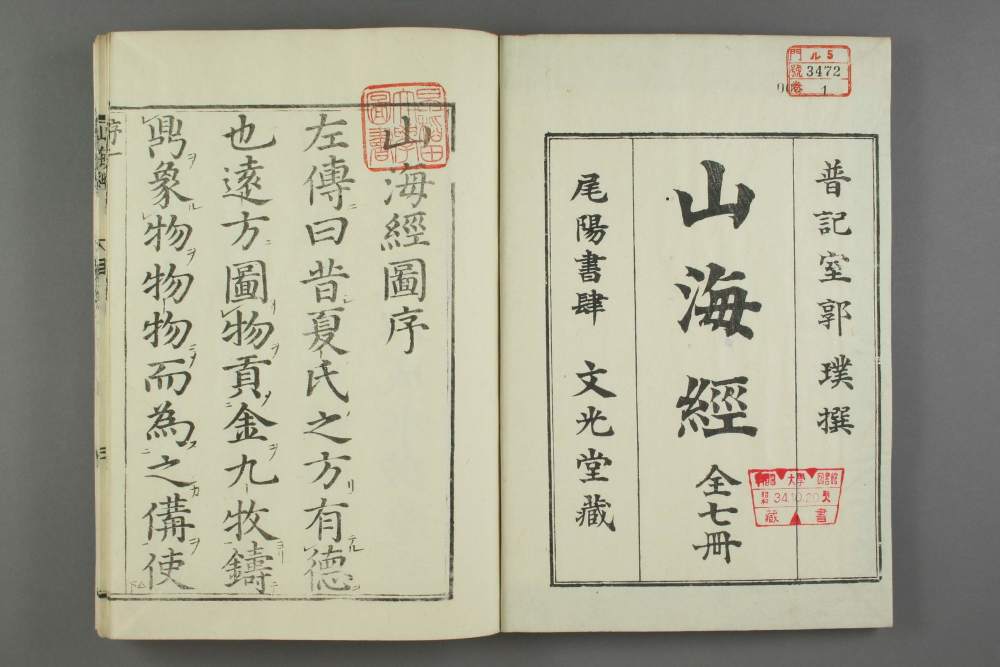 門 ル5
號 3472
卷 1
普記室郭璞撰
山海經 全七冊
尾陽書肆 文光堂藏
34.10.20
藏書
山海經圖序
左傳曰昔夏氏之方有德
也遠方圖物貢金九牧鑄
鼎象物物物而為之備使
序一